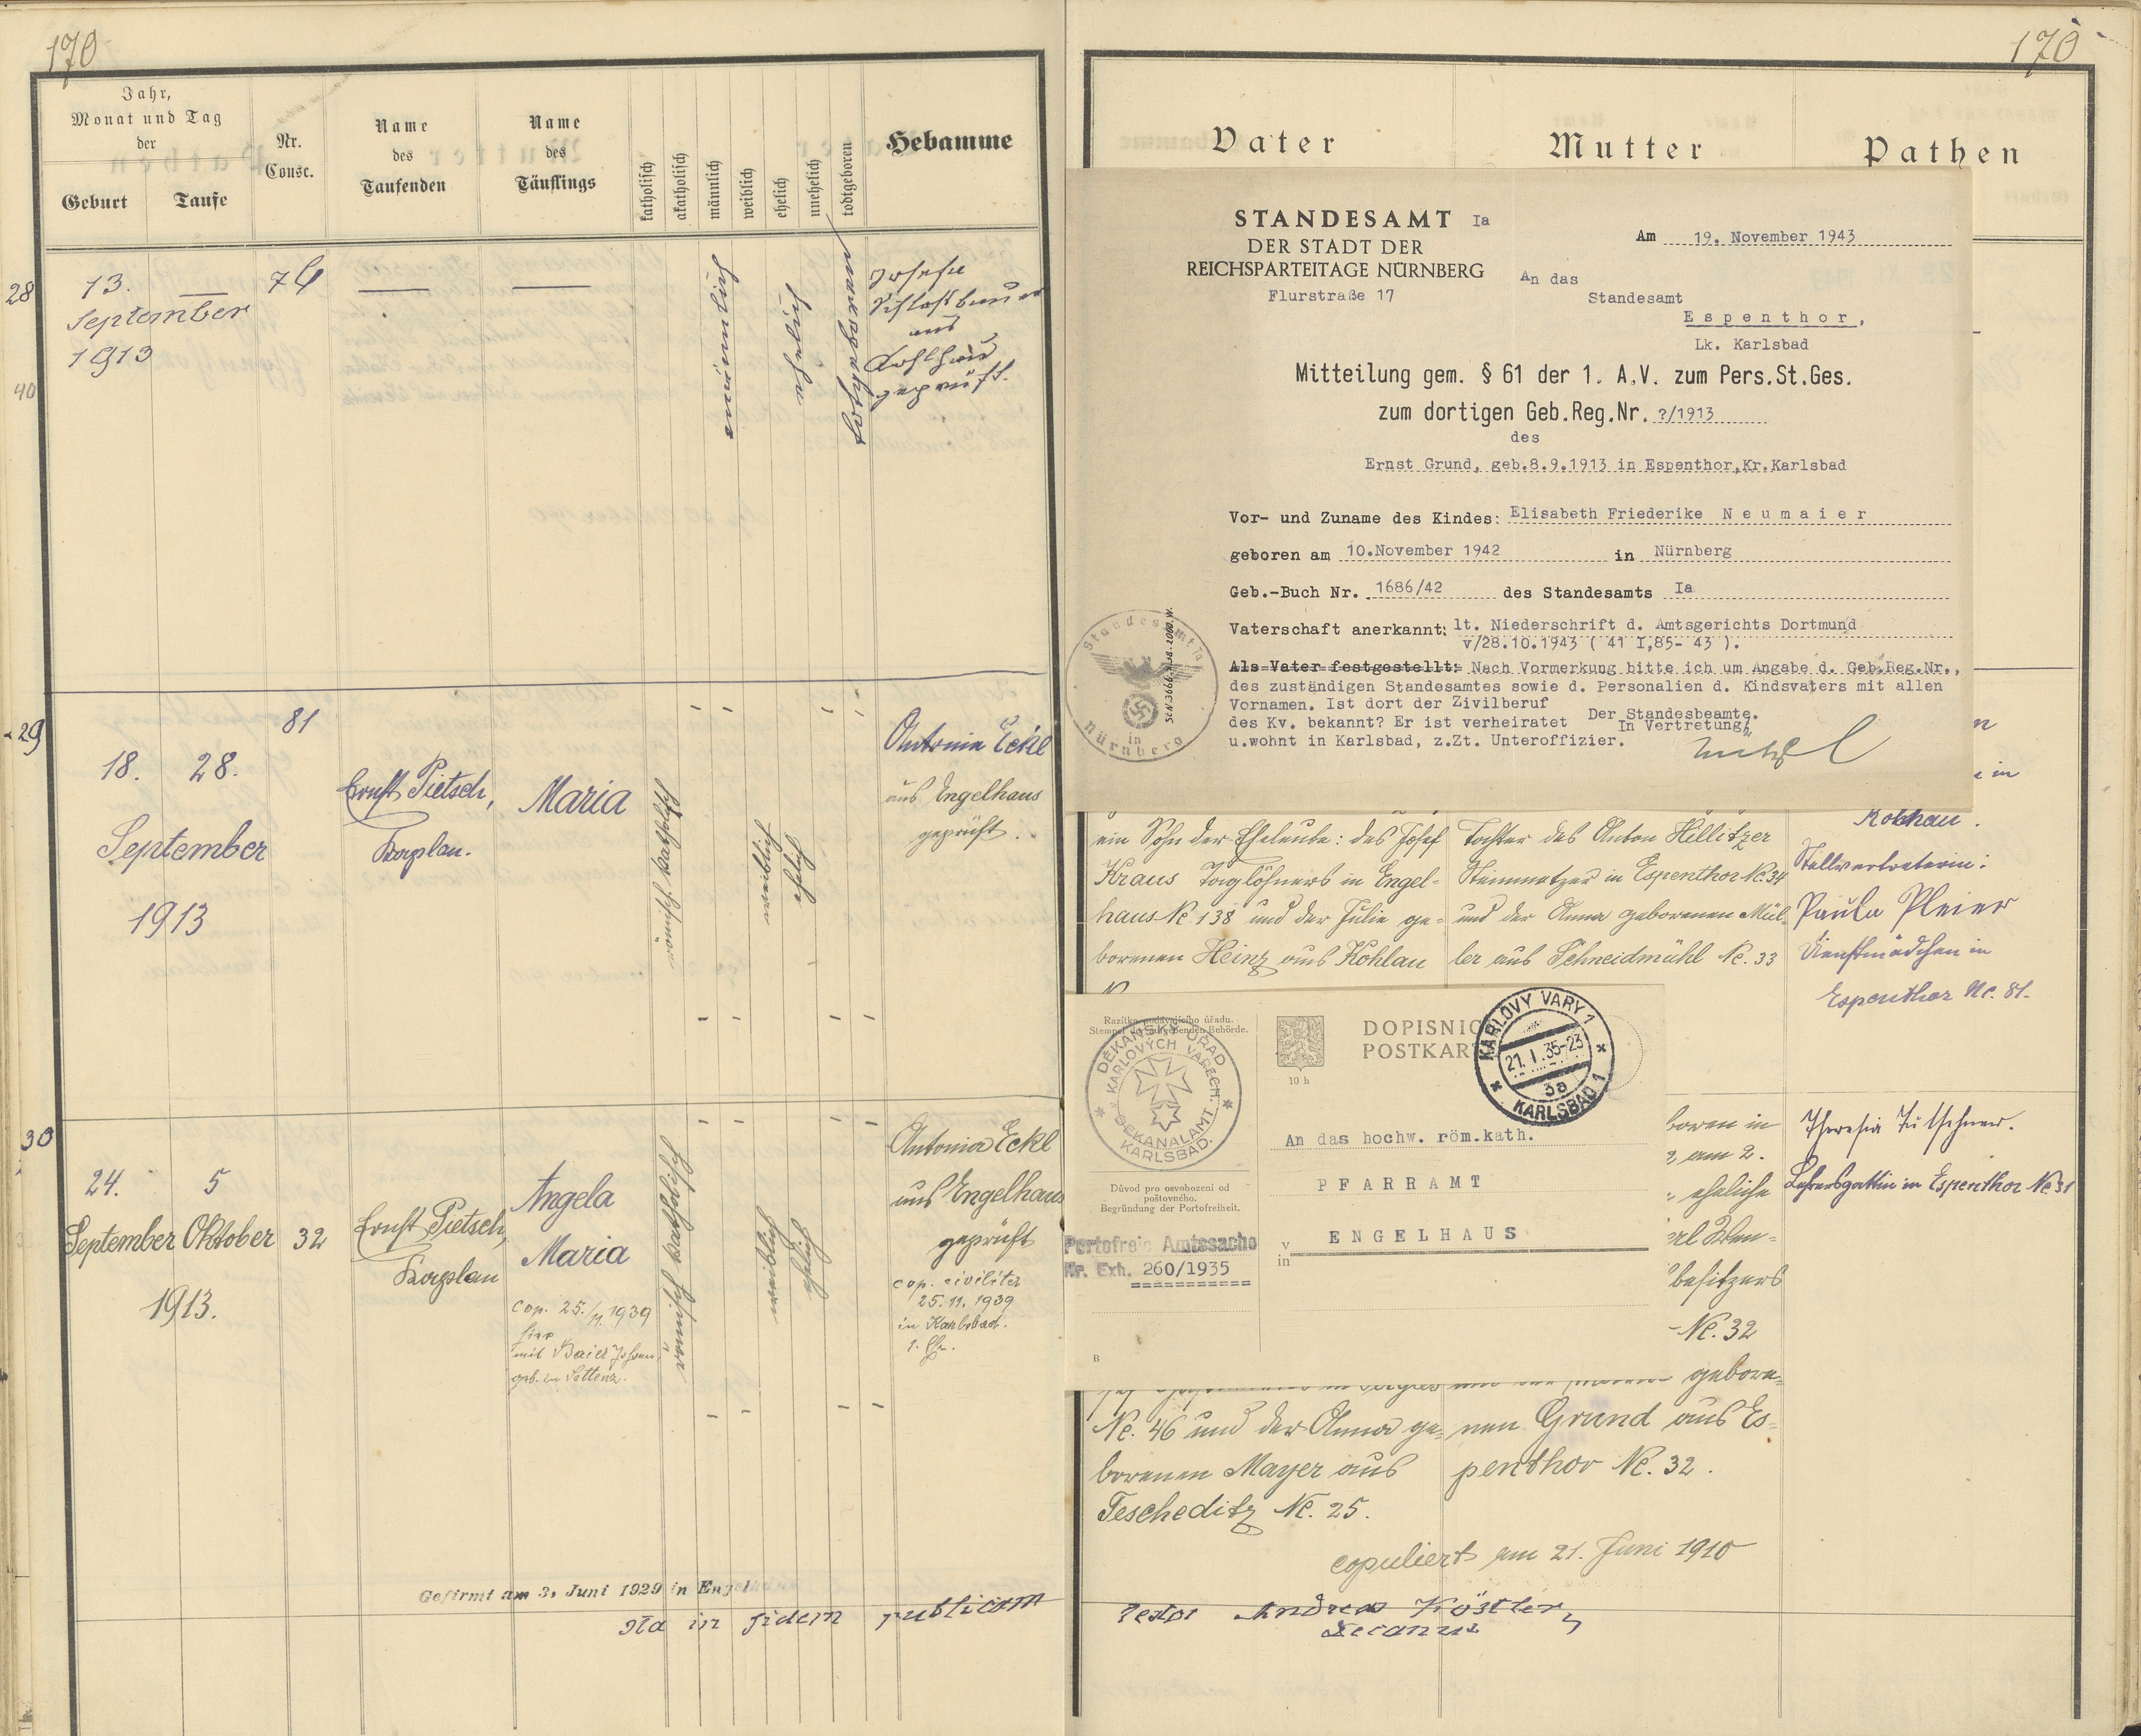 170
Jahr,
Monat und Tag
der
Geburt
Taufe
Nr.
Consc.
Name
des
Taufenden
Name
des
Täuflings
katholisch
akatholisch
männlich
weiblich
ehelich
unehelich
todtgeboren
Hebamme
28
13.
September
1913
männlich
ehelich
totgeboren
Josefa
aus
geprüft.
40
29
18. 28.
September
1913
81
Ernst Pietsch,
Maria
römisch katholisch
weiblich
ehelich
Antonia Eckl
aus Engelhaus
geprüft.
30
24. 5
September Oktober
1913.
32
Ernst Pietsch,
Angela
Maria
cop. 25./11. 1939
hier
mit Baier Johann,
geb. in
römisch katholisch
weiblich
ehelich
Antonia Eckl
aus Engelhaus
geprüft
cop. civiliter
25. 11. 1939
in Karlsbad.
Gefirmt am 3. Juni 1929 in Engelhaus
Ita in fidem publicam
170
Vater
Mutter
Pathen
STANDESAMT Ia
DER STADT DER
REICHSPARTEITAGE NÜRNBERG
Flurstraße 17
Am 19. November 1943
An das
Standesamt
Espenthor,
Lk. Karlsbad
Mitteilung gem. § 61 der 1. A.V. zum Pers.St.Ges.
zum dortigen Geb.Reg.Nr. ?/1913
des
Ernst Grund, geb.8.9.1913 in Espenthor,Kr.Karlsbad
Vor- und Zuname des Kindes: Elisabeth Friederike Neumaier
geboren am 10.November 1942 in Nürnberg
Geb.-Buch Nr. 1686/42 des Standesamts Ia
Vaterschaft anerkannt: lt. Niederschrift d. Amtsgerichts Dortmund
v/28.10.1943 ( 41 I,85- 43 ).
Als Vater festgestellt: Nach Vormerkung bitte ich um Angabe d. Geb.Reg.Nr.,
des zuständigen Standesamtes sowie d. Personalien d. Kindsvaters mit allen
Vornamen. Ist dort der Zivilberuf
des Kv. bekannt? Er ist verheiratet
u.wohnt in Karlsbad, z.Zt. Unteroffizier.
Der Standesbeamte.
In Vertretung:
Standesamt Ia
in
Nürnberg
ein Sohn der Eheleute: des Josef
Kraus Taglöhners in Engel-
haus Nc. 138 und der Julie ge-
borenen Heinz aus Kohlau
Tochter des Anton Hillitzer
Steinmetzer in Espenthor Nc. 34
und der Anna geborenen Mül-
ler aus Schneidmühl Nc. 33
in
Stellvertreterin:
Paula Pleier
Dienstmädchen in
Espenthor Nc. 81.
Razítko podávajícího úřadu.
Stempel der aufgebenden Behörde.
DĚKANSKÝ ÚŘAD
V KARLOVÝCH VARECH.
DEKANALAMT
KARLSBAD.
10 h
DOPISNICE
POSTKARTE
KARLOVY VARY 1
21. I. 35-23
3a
KARLSBAD 1
An das hochw. röm.kath.
PFARRAMT
v
in
ENGELHAUS
Důvod pro osvobození od
poštovného.
Begründung der Portofreiheit.
Portofreie Amtssache
Nr. Exh. 260/1935
B
boren in
am 2.
eheliche
besitzers
Nc. 32
gebore-
Nc. 46 und der Anna ge-
borenen Mayer aus
Tescheditz Nc. 25.
nen Grund aus Es-
penthor Nc. 32.
copuliert am 21. Juni 1910
Theresia
Lehrersgattin in Espenthor Nc 31
Andreas Köstler,
Decanus